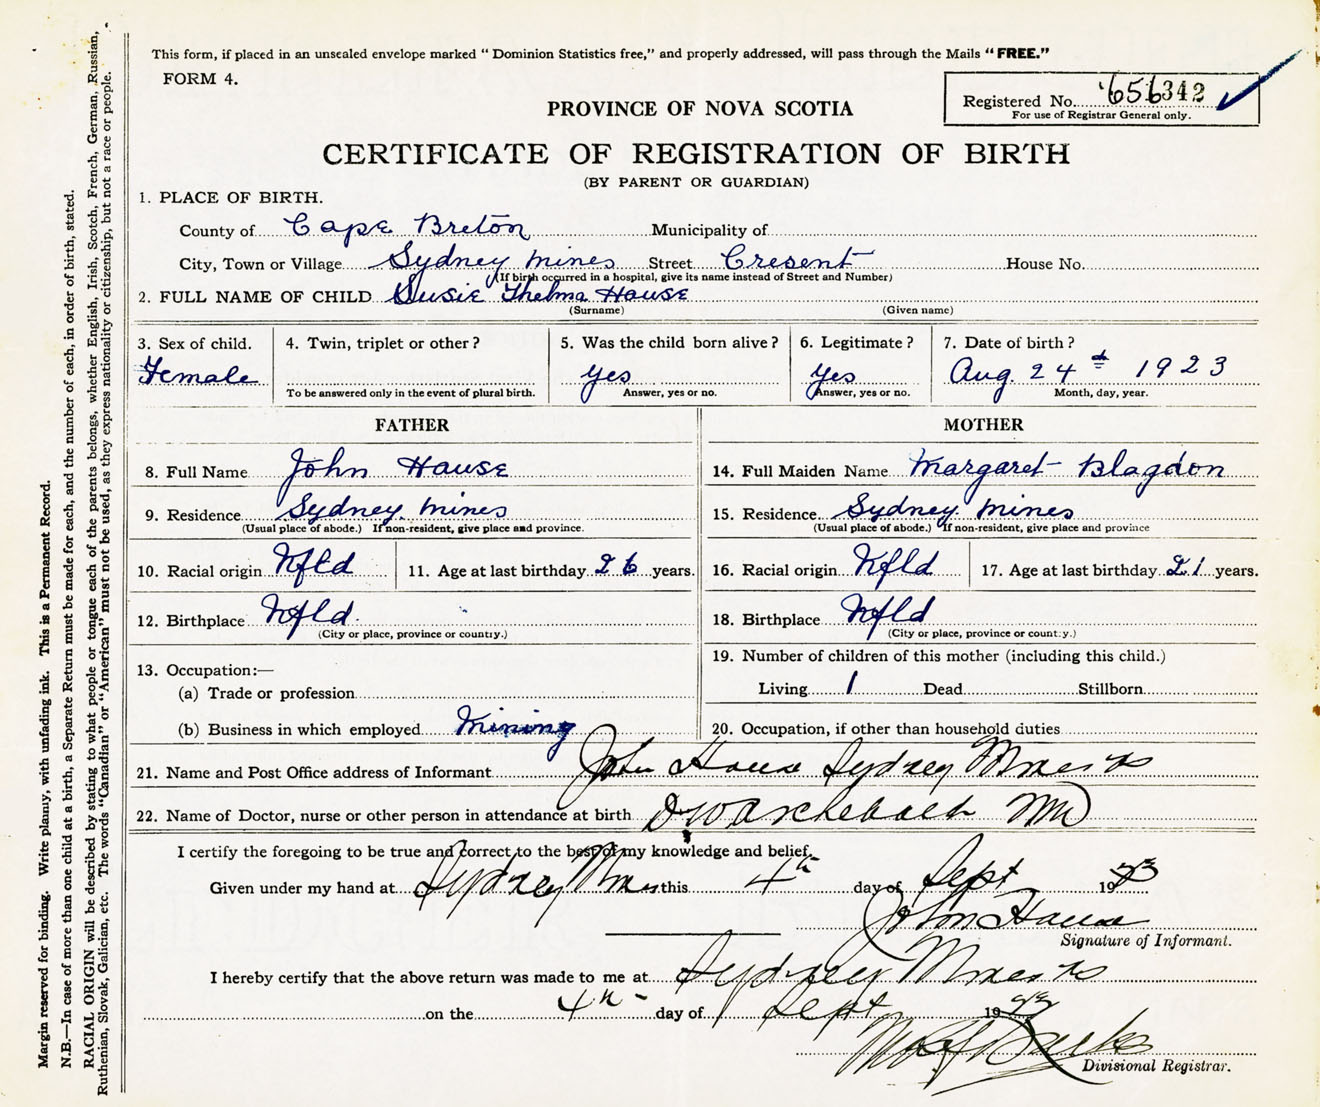 This form, if placed in an unsealed envelope marked "Dominion Statistics free," and properly addressed, will pass through the Mails "FREE."
FORM 4.
Registered No. 656342
For use of Registrar General only.
PROVINCE OF NOVA SCOTIA
CERTIFICATE OF REGISTRATION OF BIRTH
(BY PARENT OR GUARDIAN)
1. PLACE OF BIRTH.
County of Cape Breton Municipality of
City, Town or Village Sydney Mines Street Cresent House No.
(If birth occurred in a hospital, give its name instead of Street and Number)
2. FULL NAME OF CHILD Susie Thelma House
(Surname) (Given name)
3. Sex of child. 4. Twin, triplet or other? 5. Was the child born alive? 6. Legitimate? 7. Date of birth?
Female yes Yes Aug. 24 1923
To be answered only in the event of plural birth. Answer, yes or no. Answer, yes or no. Month, day, year.
FATHER MOTHER
8. Full Name John House 14. Full Maiden Name Margaret Blagdon
9. Residence Sydney Mines 15. Residence Sydney Mines
(Usual place of abode.) If non-resident, give place and province. (Usual place of abode.) If non-resident, give place and province
10. Racial origin Nfld 11. Age at last birthday 26 years. 16. Racial origin Nfld 17. Age at last birthday 21 years.
12. Birthplace Nfld. 18. Birthplace Nfld
(City or place, province or country.) (City or place, province or country.)
13. Occupation:— 19. Number of children of this mother (including this child.)
(a) Trade or profession Living 1 Dead Stillborn
(b) Business in which employed Mining 20. Occupation, if other than household duties
21. Name and Post Office address of Informant John House Sydney Mines NS
22. Name of Doctor, nurse or other person in attendance at birth MD
I certify the foregoing to be true and correct to the best of my knowledge and belief.
Given under my hand at Sydney Mines this 4th day of Sept 1923
John House
Signature of Informant.
I hereby certify that the above return was made to me at Sydney Mines NS
on the 4th day of Sept 1923
Divisional Registrar.
Margin reserved for binding. Write plainly, with unfading ink. This is a Permanent Record.
N.B.—In case of more than one child at a birth, a Separate Return must be made for each, and the number of each, in order of birth, stated.
RACIAL ORIGIN will be described by stating to what people or tongue each of the parents belongs, whether English, Irish, Scotch, French, German, Russian,
Ruthenian, Slovak, Galician, etc. The words "Canadian" or "American" must not be used, as they express nationality or citizenship, but not a race or people.